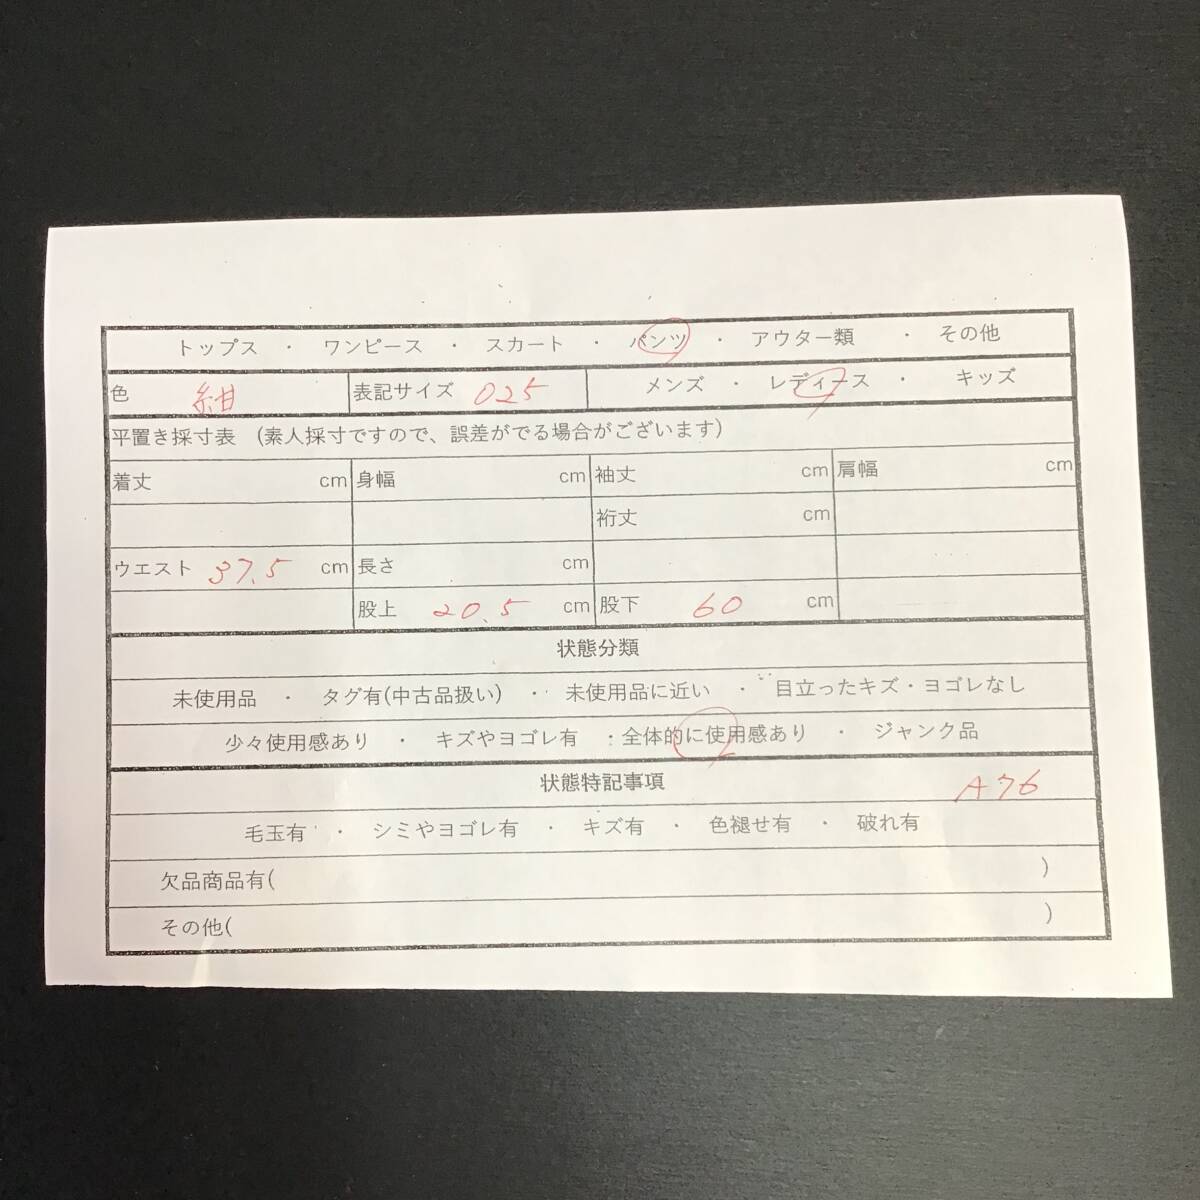 トップス ・ ワンピース ・ スカート ・ パンツ ・ アウター類 ・ その他
色 紺 表記サイズ 025 メンズ ・ レディース ・ キッズ
平置き採寸表 (素人採寸ですので、誤差がでる場合がございます)
着丈 cm 身幅 cm 袖丈 cm 肩幅 cm
裄丈 cm
ウエスト 37.5 cm 長さ cm
股上 20.5 cm 股下 60 cm
状態分類
未使用品 ・ タグ有(中古品扱い) ・ 未使用品に近い ・ 目立ったキズ・ヨゴレなし
少々使用感あり ・ キズやヨゴレ有 ・全体的に使用感あり ・ ジャンク品
状態特記事項 A76
毛玉有 ・ シミやヨゴレ有 ・ キズ有 ・ 色褪せ有 ・ 破れ有
欠品商品有( )
その他( )